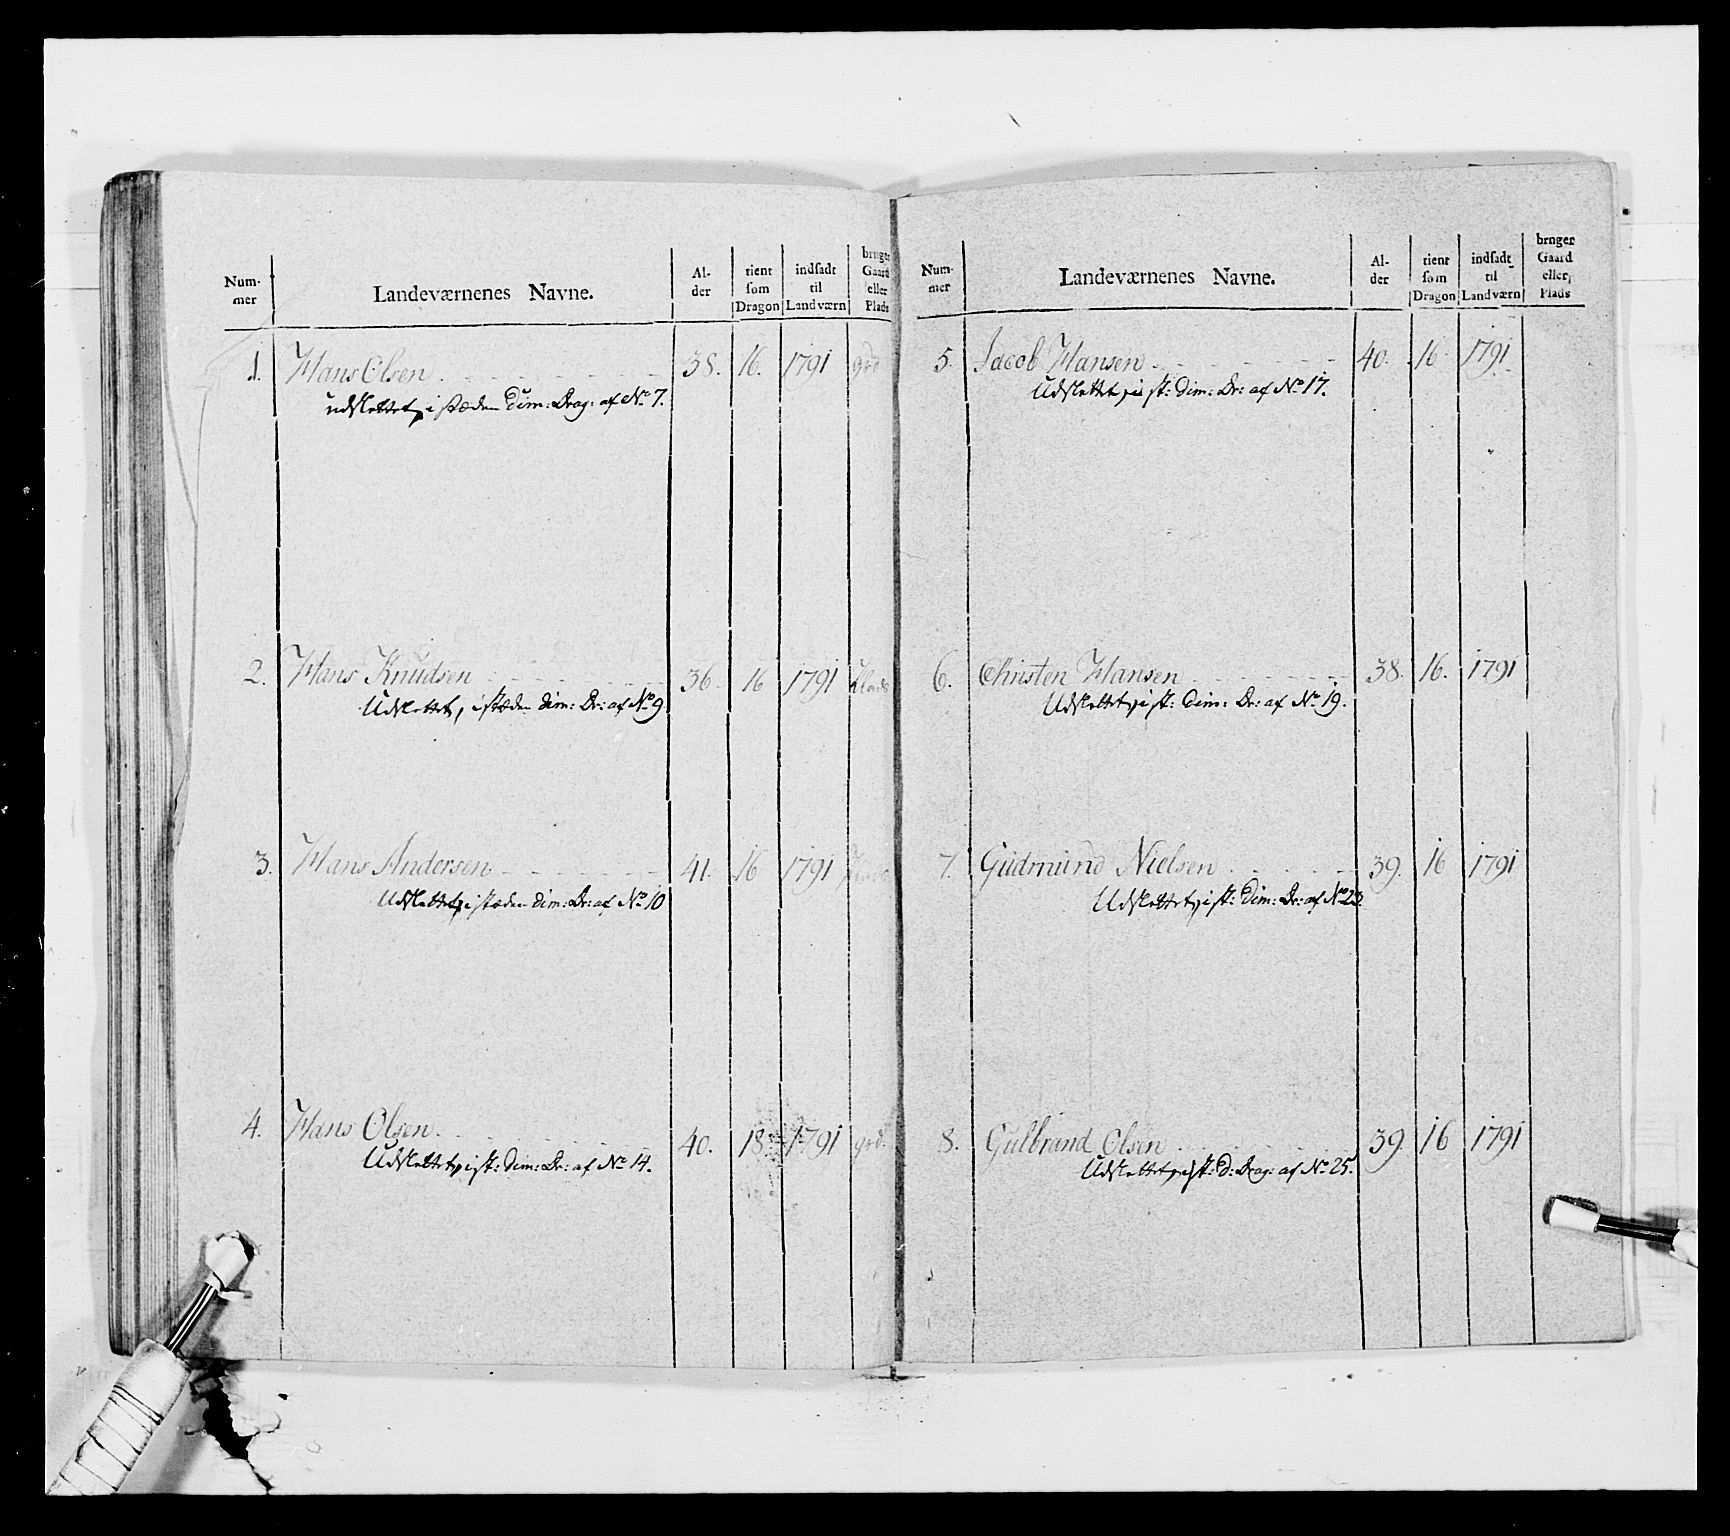 Num-
mer
Landeværnenes Navne.
Al-
der
tient
som
Dragon
indsadt
til
Landværn
bruger
Gaard
eller
Plads
1. Hans Olsen 38. 16. 1791 grd
udslettet, i stæden dim: Drag: af No 7.
2. Hans Knudsen 36 16 1791 Plads
Udslettet, i stæden dim: Dr: af No 9
3. Hans Andersen 41. 16 1791 Plads
Udslettet, i stæden dim: Dr: af No 10
4. Hans Olsen 40. 18 1791 grd.
Udslettet, i st: dim: Dr: af No 14.
Num-
mer
Landeværnenes Navne.
Al-
der
tient
som
Dragon
indsadt
til
Landværn
bruger
Gaard
eller
Plads
5. Jacob Hansen 40. 16 1791
Udslettet, i st: dim: Dr: af No 17.
6. Christen Hansen 38. 16. 1791
Udslettet, i st: dim: Dr: af No 19.
7. Gudmund Nielsen 39. 16 1791
Udslettet, i st: dim: Dr: af No 23.
8. Gulbrand Olsen 39. 16 1791
Udslettet, i st: d: Drag: af No 25.